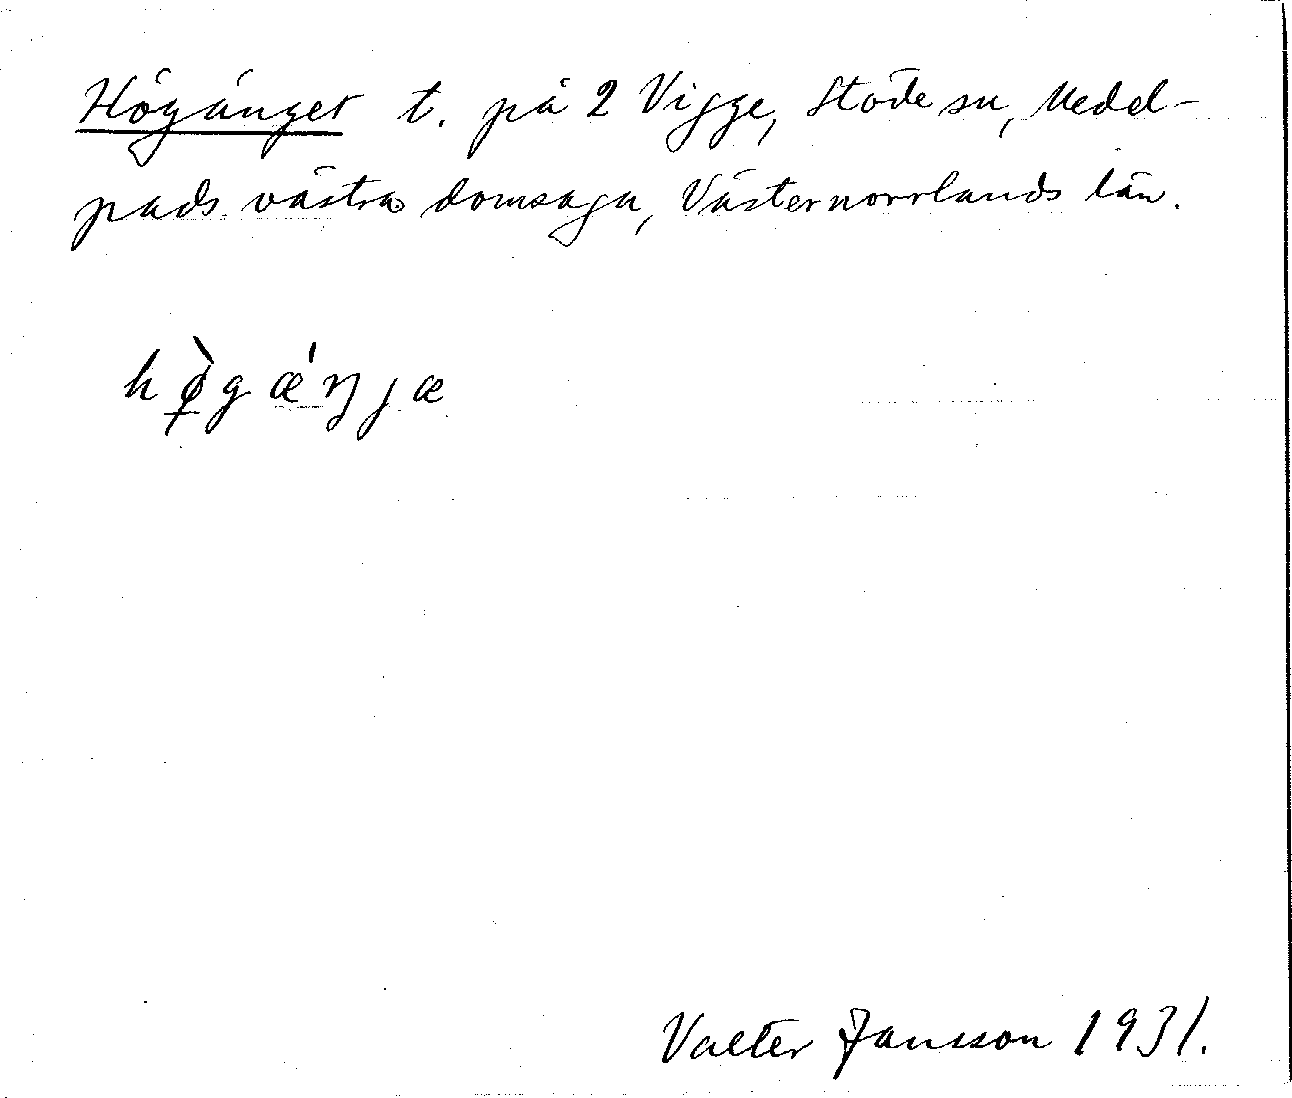 Högänget t. på 2 Vigge, Stöde sn, Medel-
pads västra domsaga, Västernorrlands län.
hø̀gæ'ŋjæ
Valter Jansson 1931.